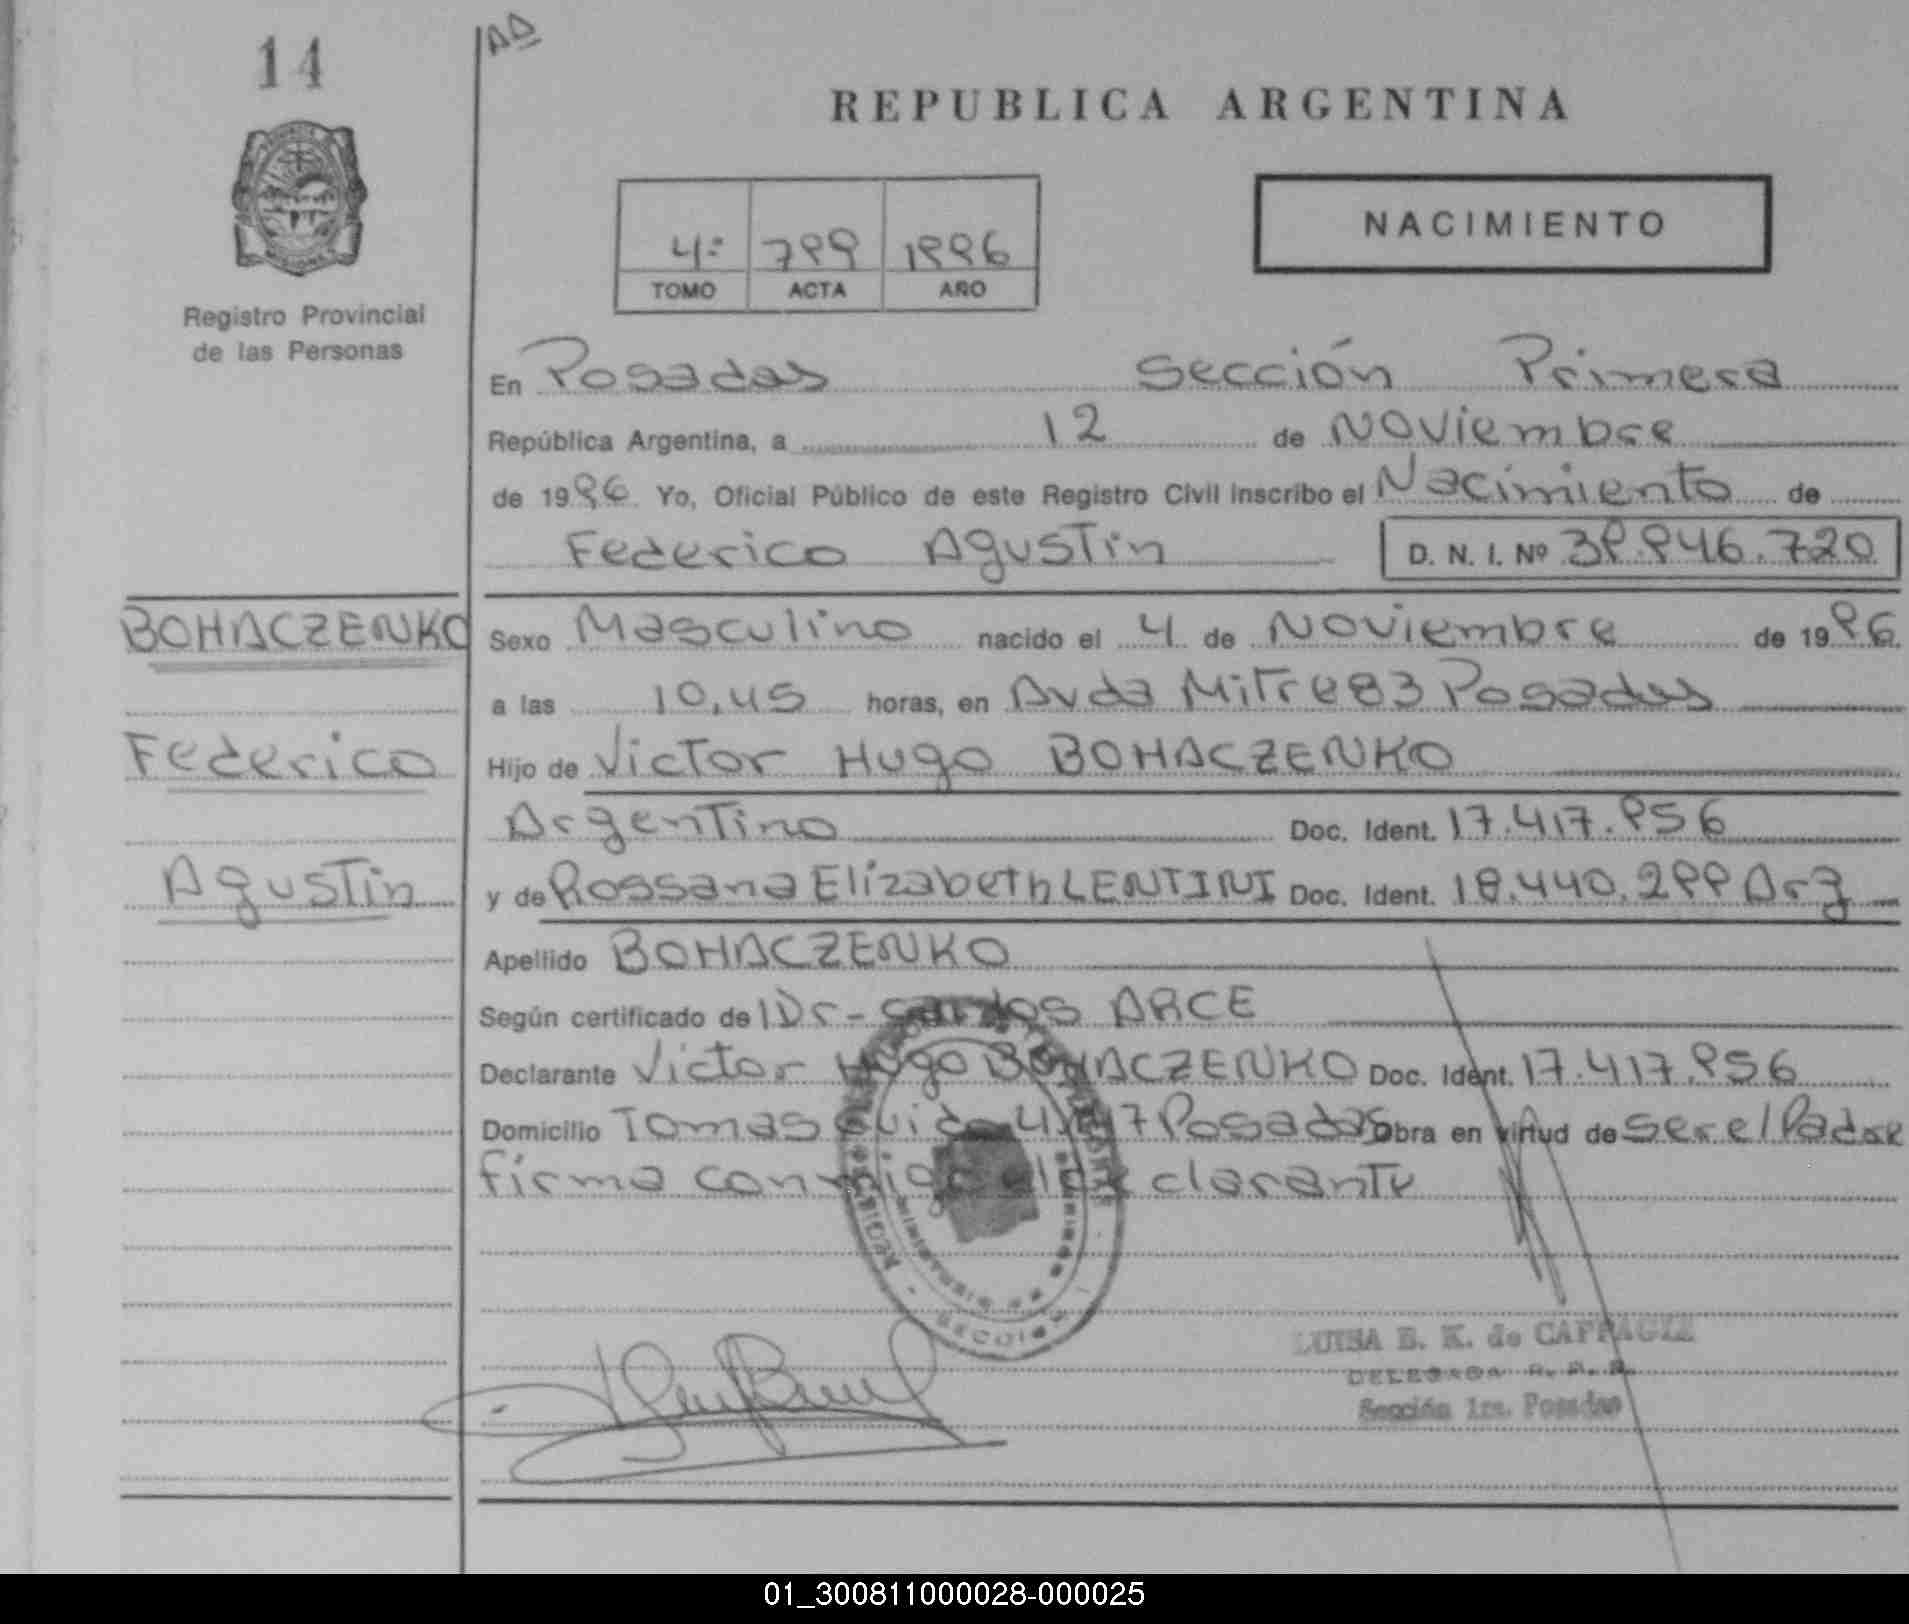 14
AD
REPUBLICA ARGENTINA
NACIMIENTO
4º 799 1996
TOMO ACTA AÑO
Registro Provincial
de las Personas
En Posadas Sección Primera
República Argentina, a 12 de Noviembre
de 1996. Yo, Oficial Público de este Registro Civil inscribo el Nacimiento de
Federico Agustin D. N. I. Nº 39.946.720
BOHACZENKO
Federico
Agustin
Sexo Masculino nacido el 4 de Noviembre de 1996.
a las 10,45 horas, en Avda Mitre 83 Posadas
Hijo de Victor Hugo BOHACZENKO
Argentino Doc. Ident. 17.417.956
y de Rossana Elizabeth LENTINI Doc. Ident. 18.440.299 Arg
Apellido BOHACZENKO
Según certificado de Dr- Carlos ARCE
Declarante Victor Hugo BOHACZENKO Doc. Ident. 17.417.956
Domicilio Tomas Guido Posadas Obra en virtud de ser el Padre
firma conmigo el declarante
LUISA E. K. de
DELEGADA R. P. P.
Sección 1ra. Posadas
01_300811000028-000025